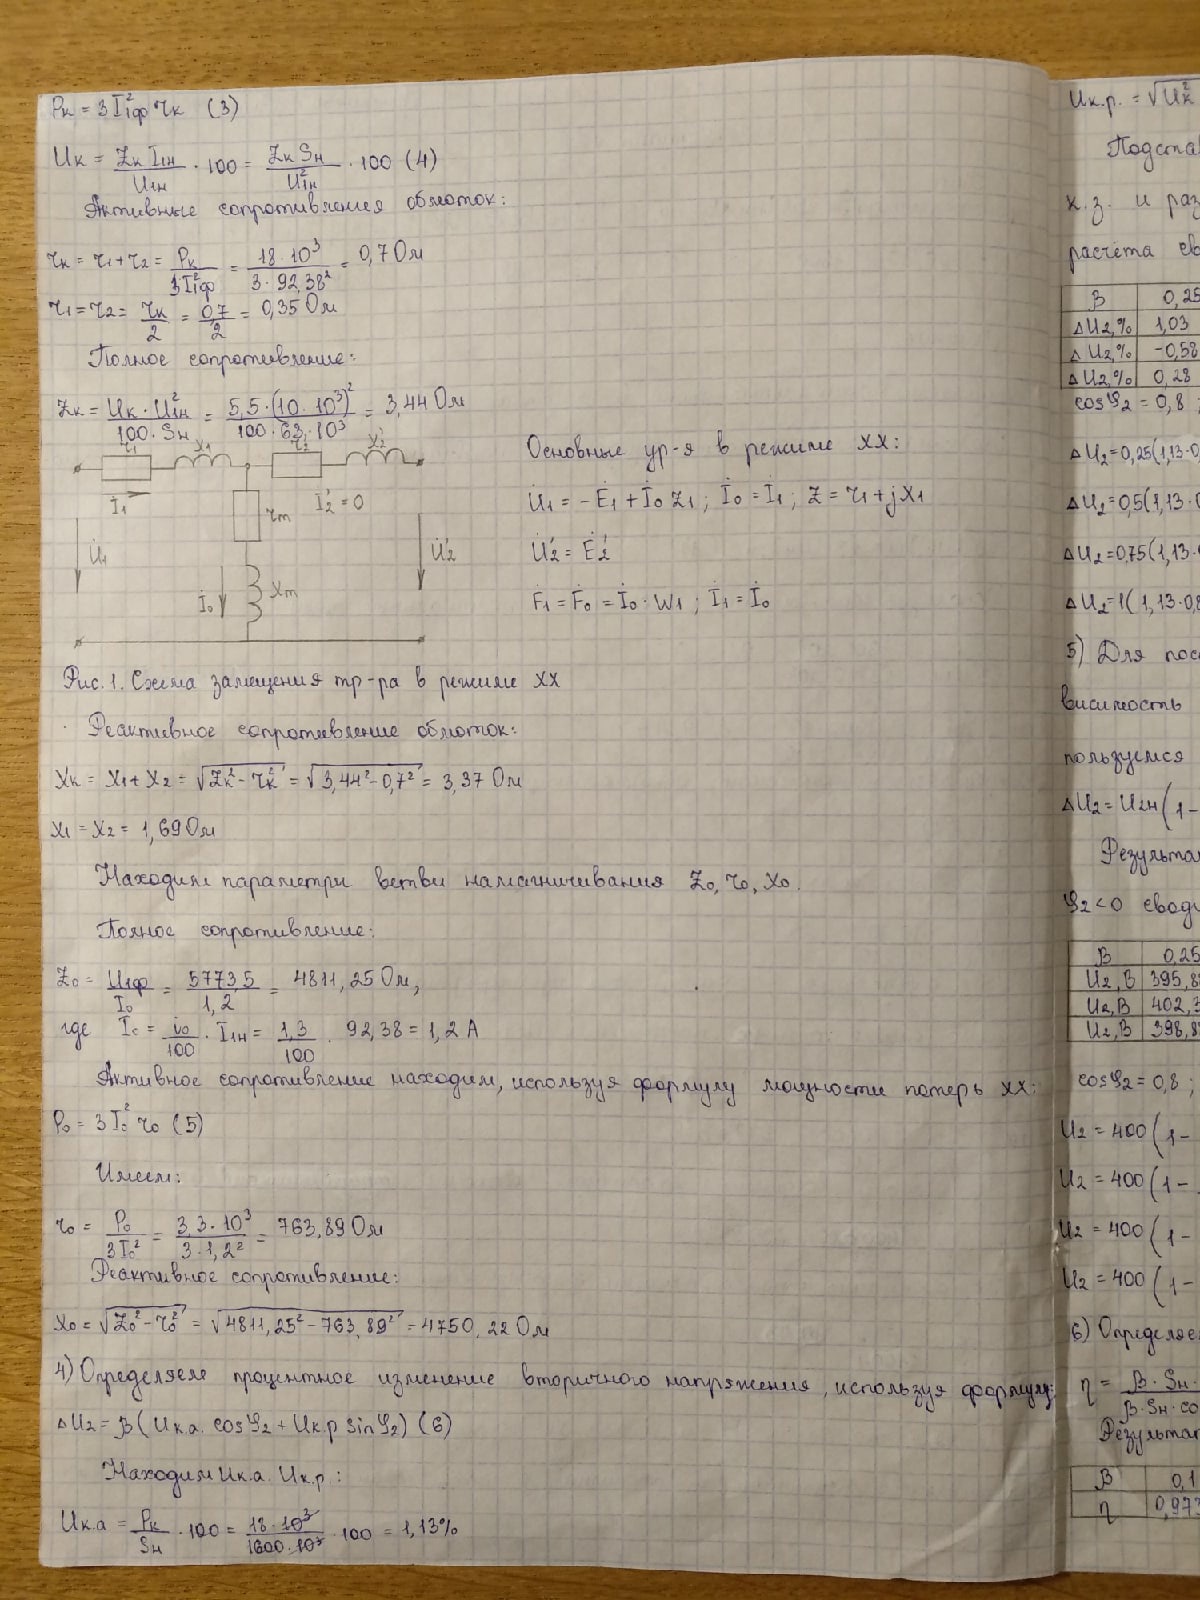 Pк = 3I₁ф² rк (3)
Uк = Zк I₁н / U₁н · 100 = Zк Sн / U₁н² · 100 (4)
Активные сопротивления обмоток:
rк = r₁ + r₂ = Pк / 3I₁ф² = 18·10³ / 3·92,38² = 0,7 Ом
r₁ = r₂ = rк / 2 = 0,7 / 2 = 0,35 Ом
Полное сопротивление:
Zк = Uк · U₁н² / 100·Sн = 5,5·(10·10³)² / 100·63·10³ = 3,44 Ом
r₁ x₁ r₂' x₂'
İ₁ İ₂' = 0
rm
U̇₁ U̇₂'
İ₀ xm
Основные ур-я в режиме XX:
U̇₁ = -Ė₁ + İ₀ Z₁; İ₀ = İ₁; Z = r₁ + jx₁
U̇₂' = Ė₂'
Ḟ₁ = Ḟ₀ = İ₀ · W₁; İ₁ = İ₀
Рис. 1. Схема замещения тр-ра в режиме XX
Реактивное сопротивление обмоток:
Xк = X₁ + X₂ = √(Zк² - rк²) = √(3,44² - 0,7²) = 3,37 Ом
x₁ = x₂ = 1,69 Ом
Находим параметры ветви намагничивания Z₀, r₀, X₀.
Полное сопротивление:
Z₀ = U₁ф / I₀ = 5773,5 / 1,2 = 4811,25 Ом,
где I₀ = i₀ / 100 · I₁н = 1,3 / 100 · 92,38 = 1,2 А
Активное сопротивление находим, используя формулу мощности потерь XX:
P₀ = 3I₀² r₀ (5)
Имеем:
r₀ = P₀ / 3I₀² = 3,3·10³ / 3·1,2² = 763,89 Ом
Реактивное сопротивление:
X₀ = √(Z₀² - r₀²) = √(4811,25² - 763,89²) = 4750,22 Ом
4) Определяем процентное изменение вторичного напряжения, используя формулу:
ΔU₂ = β(Uк.а. cosφ₂ + Uк.р sinφ₂) (6)
Находим Uк.а. Uк.р.:
Uк.а = Pк / Sн · 100 = 18·10³ / 1600·10³ · 100 = 1,13%
Uк.р. = √Uк²
к.з. и
расчёта
β 0,25
ΔU₂,% 1,03
ΔU₂,% -0,58
ΔU₂,% 0,28
cosφ₂ = 0,8;
ΔU₂ = 0,25(1,13·0,
ΔU₂ = 0,5(1,13·
ΔU₂ = 0,75(1,13·
ΔU₂ = 1(1,13·0,8
5) Для
пользуемся
ΔU₂ = U₂н(1-
φ₂<0
β 0,25
U₂,В 395,8
U₂,В 402,3
U₂,В 398,8
cosφ₂ = 0,8;
U₂ = 400(1-
U₂ = 400(1-
U₂ = 400(1-
U₂ = 400(1-
6)
η = β·Sн· / β·Sн·co
β 0,1
η 0,973